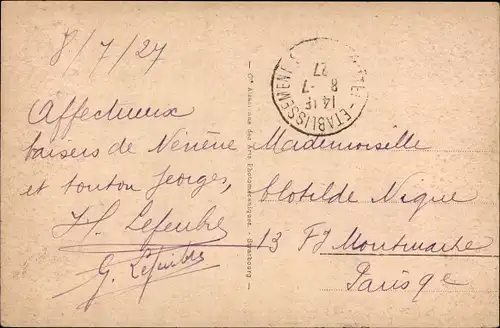 8/7/27
Affectueux
baisers de Nénène
et tonton Georges,
H. Lefeubre
G. Lefeubre
— Cie Alsacienne des Arts Photomécaniques - Strasbourg —
ETABLISSEMENT
14 15
8 -7
27
Mademoiselle
Clotilde Nique
13 Fg Montmartre
Paris 9e